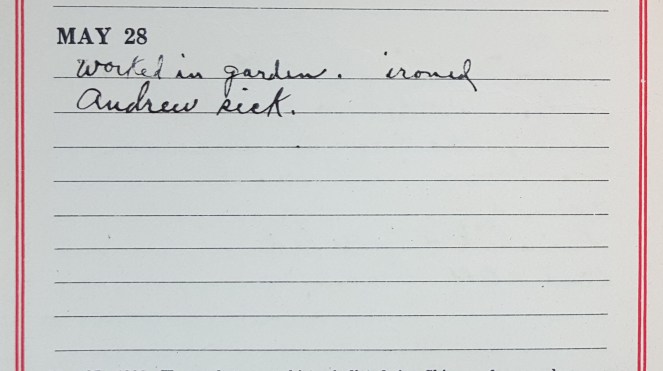 MAY 28
Worked in garden. ironed
Andrew sick.